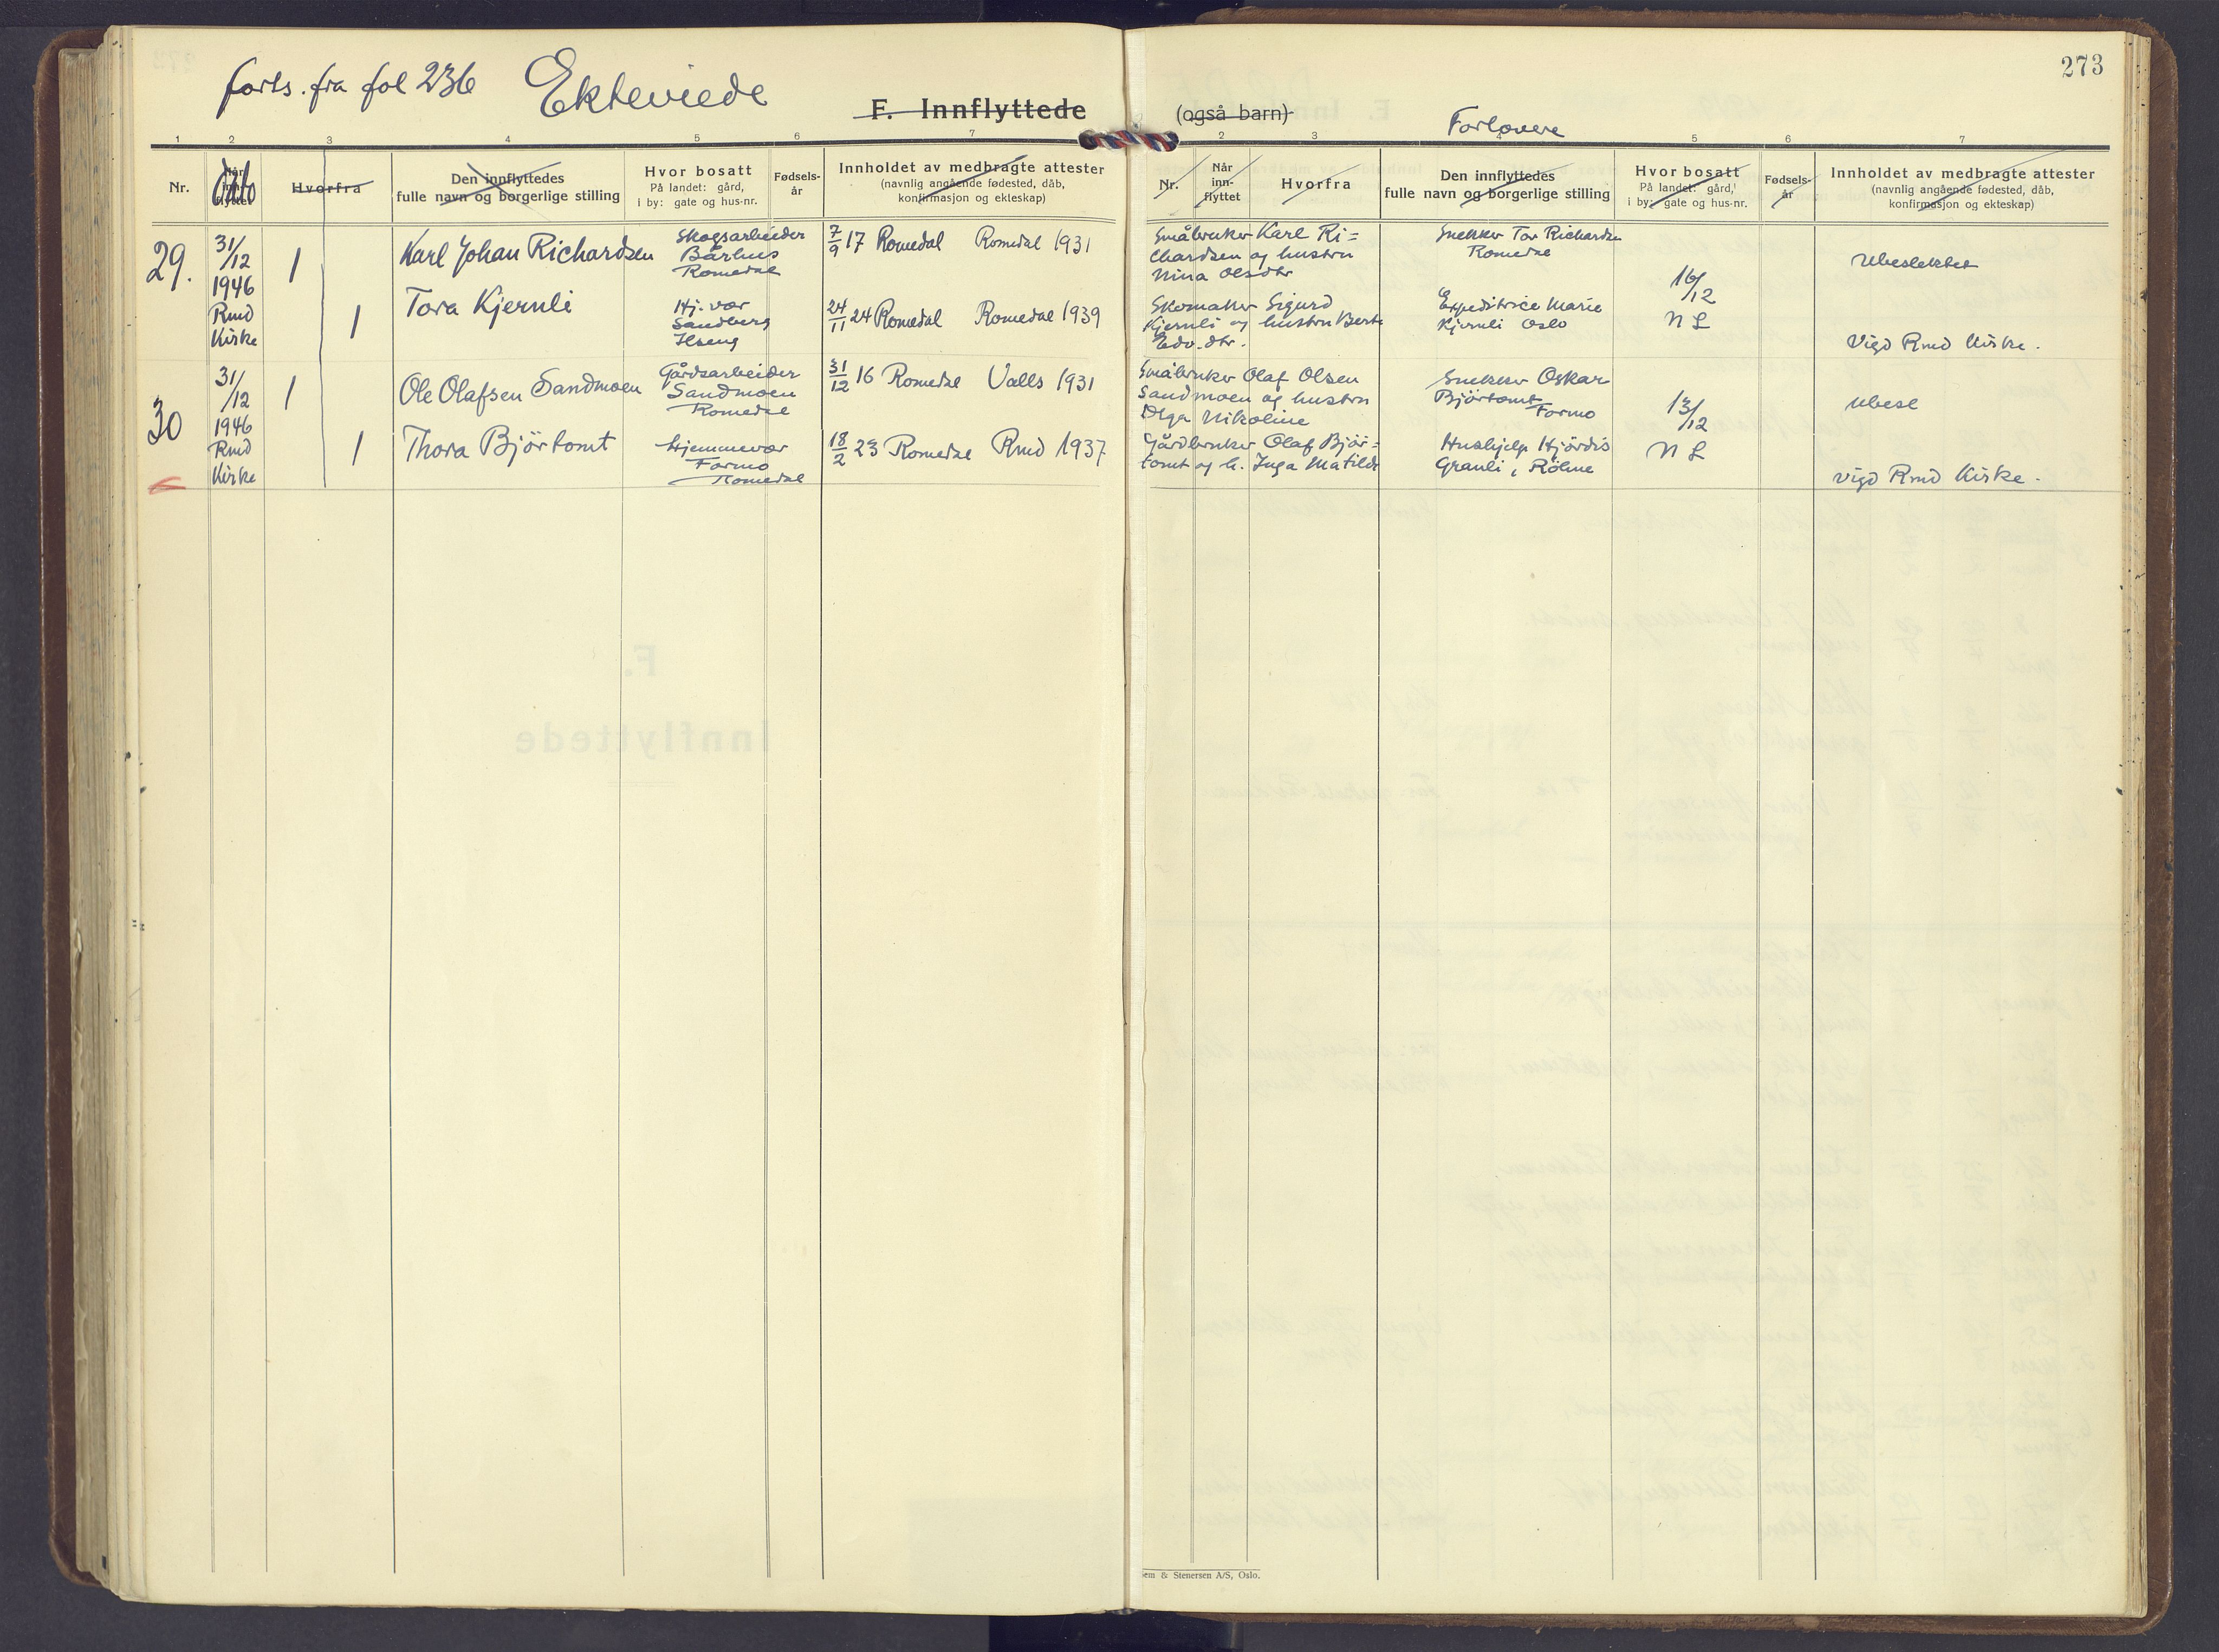 273
forts. fra fol 236 Ekteviede
F. Innflyttede (også barn)
Forlovere
1 2 3 4 5 6 7
2 3 4 5 6 7
Nr.
Når inn-flyttet
Dato
Hvorfra
Den innflyttedes
fulle navn og borgerlige stilling
Hvor bosatt
På landet: gård,
i by: gate og hus-nr.
Fødsels-
år
Innholdet av medbragte attester
(navnlig angående fødested, dåb,
konfirmasjon og ekteskap)
Nr.
Når
inn-
flyttet
Hvorfra
Den innflyttedes
fulle navn og borgerlige stilling
Hvor bosatt
På landet: gård,
i by: gate og hus-nr.
Fødsels-
år
Innholdet av medbragte attester
(navnlig angående fødested, dåb,
konfirmasjon og ekteskap)
29.
31/12
1946
Rmd
Kirke
1
Karl Johan Richardsen
Skogsarbeider
Bårhus
Romedal
7/9 17 Romedal Romedal 1931
Småbruker Karl Ri=
chardsen og hustru
Nina Olsdtr
Snekker Tor Richardsen
Romedal
16/12
N L
Ubeslektet
1
Tora Kjernli
Hj. vær
Sandberg
Ilseng
24/11 24 Romedal Romedal 1939
Skomaker Sigurd
Kjernli og hustru Berte
Edv. dtr.
Expeditrice Marie
Kjernli Oslo
Vigd Rmd Kirke.
30
31/12
1946
Rmd
Kirke
1
Ole Olafsen Sandmoen
Gårdsarbeider
Sandmoen
Romedal
31/12 16 Romedal Valls 1931
Småbruker Olaf Olsen
Sandmoen og hustru
Olga Nikoline
Snekker Oskar
Björtomt
Formo
13/12
N L
Ubesl
1
Thora Björtomt
Hjemmevær
Formo
Romedal
18/2 23 Romedal Rmd 1937
Gårdbruker Olaf Björ=
tomt og h. Inga Matilde
Hushjelp Hjördis
Granli, Röhne
Vigd Rmd Kirke.
F.
Innflyttede
em & Stenersen A/S, Oslo.